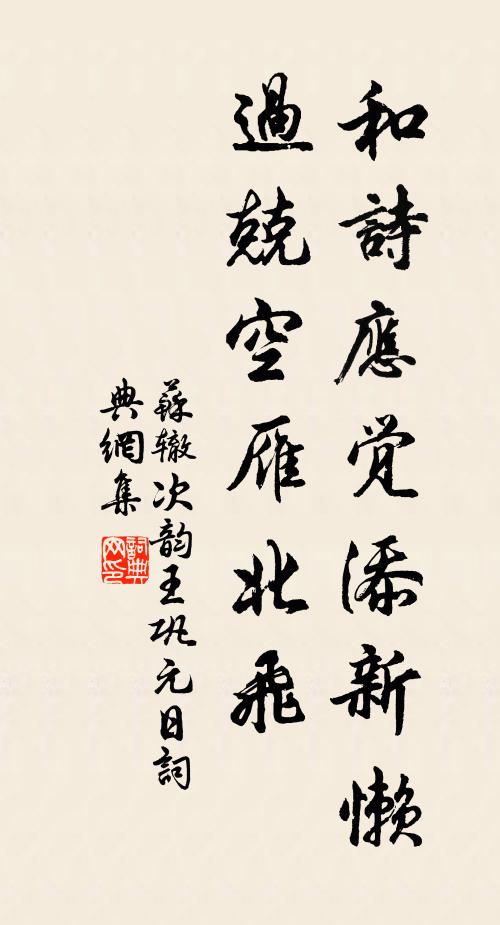 和詩應觉添新懒
過兢空雁北飛
蘇辙次韵王巩元日詞
典網集
詞典
网印